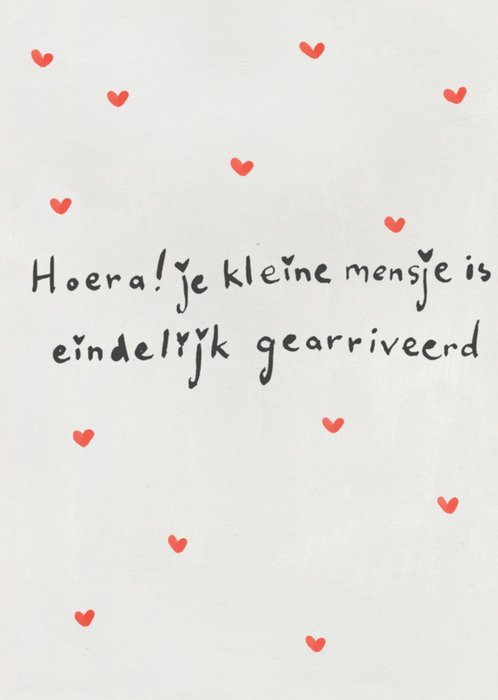 Hoera! je kleine mensje is
eindelijk gearriveerd